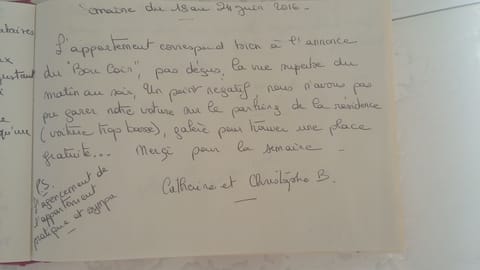 Semaine du 18 au 24 juin 2016.
L'appartement correspond bien à l'annonce
du "Bon Coin", pas déçus, la vue superbe du
matin au soir, Un point negatif, nous n'avons pas
pu garer notre voiture sur le parking de la residence
(voiture trop basse), galère pour trouver une place
gratuite... Merçi pour la semaine -
Catherine et Christophe B.
PS.
L'agencement de
l'appartement
pratique et sympa
ataires